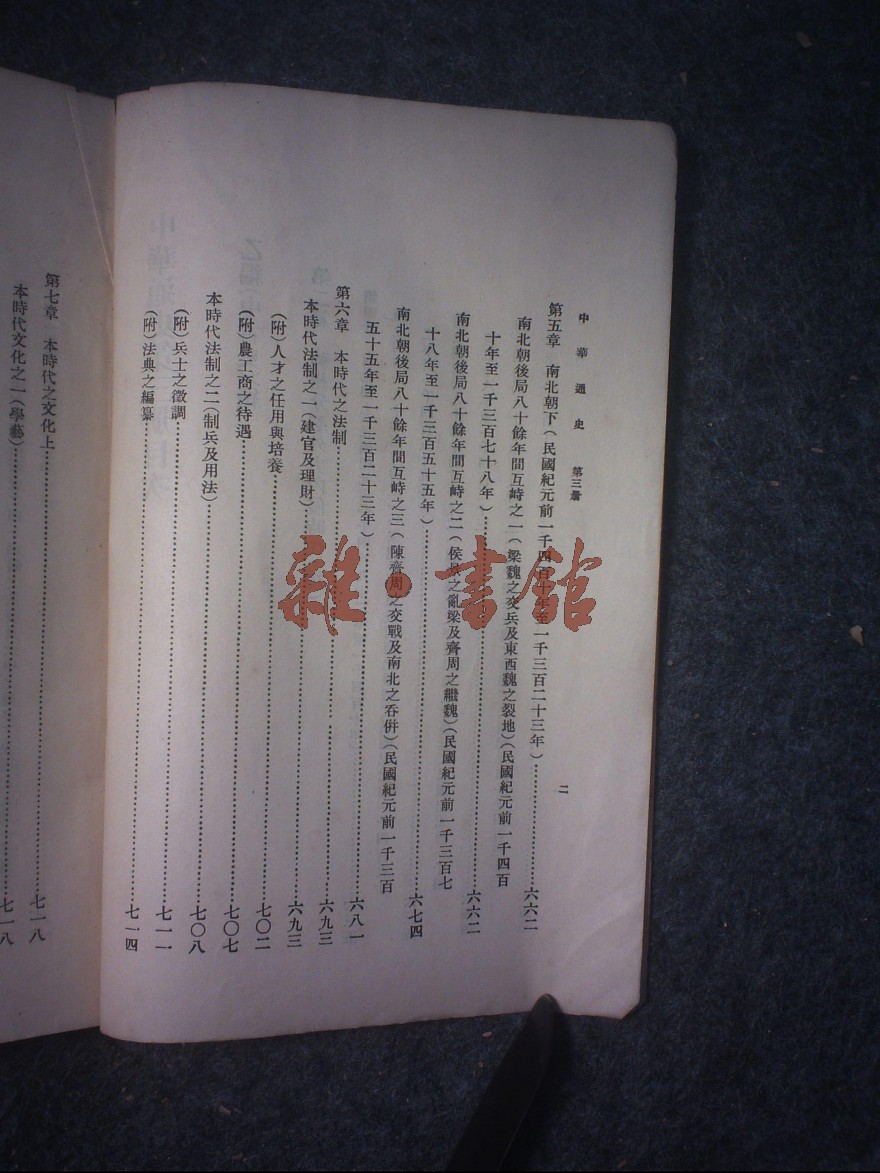 中華通史　第三册
二
第五章　南北朝下（民國紀元前一千四百十年至一千三百二十三年）…………六六二
南北朝後局八十餘年間互峙之一（梁魏之交兵及東西魏之裂地）（民國紀元前一千四百
十年至一千三百七十八年）…………六六二
南北朝後局八十餘年間互峙之二（侯景之亂梁及齊周之繼魏）（民國紀元前一千三百七
十八年至一千三百五十五年）…………六七四
南北朝後局八十餘年間互峙之三（陳齊周之交戰及南北之吞併）（民國紀元前一千三百
五十五年至一千三百二十三年）…………六八一
第六章　本時代之法制…………六九三
本時代法制之一（建官及理財）…………六九三
（附）人才之任用與培養…………七〇二
（附）農工商之待遇…………七〇七
本時代法制之二（制兵及用法）…………七〇八
（附）兵士之徵調…………七一一
（附）法典之編纂…………七一四
第七章　本時代之文化上…………七一八
本時代文化之一（學藝）…………七一八
雜·書館